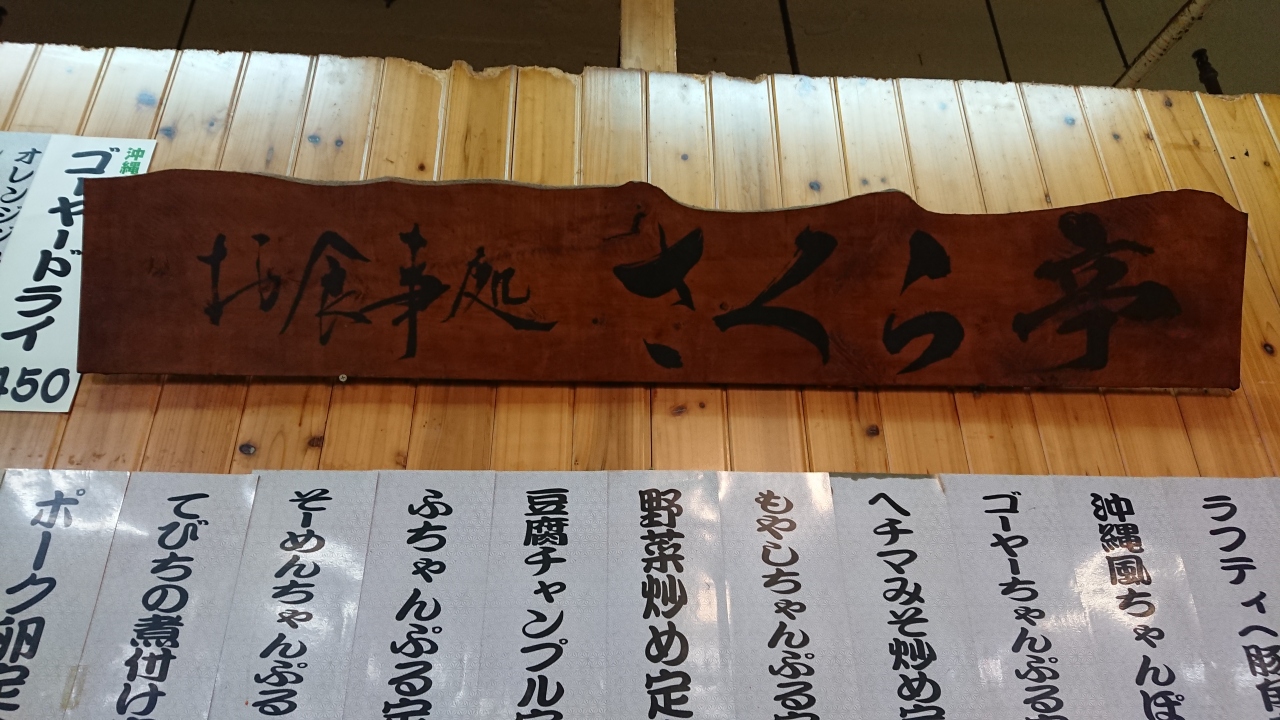 お食事処 さくら亭
沖縄
ゴーヤードライ
450
オレンジ
ラフティ
沖縄風ちゃんぽ
ゴーヤーちゃんぷる
ヘチマみそ炒め定
もやしちゃんぷる定
野菜炒め定
豆腐チャンプル定
ふちゃんぷる定
そーめんちゃんぷる
てびちの煮付け
ポーク卵定